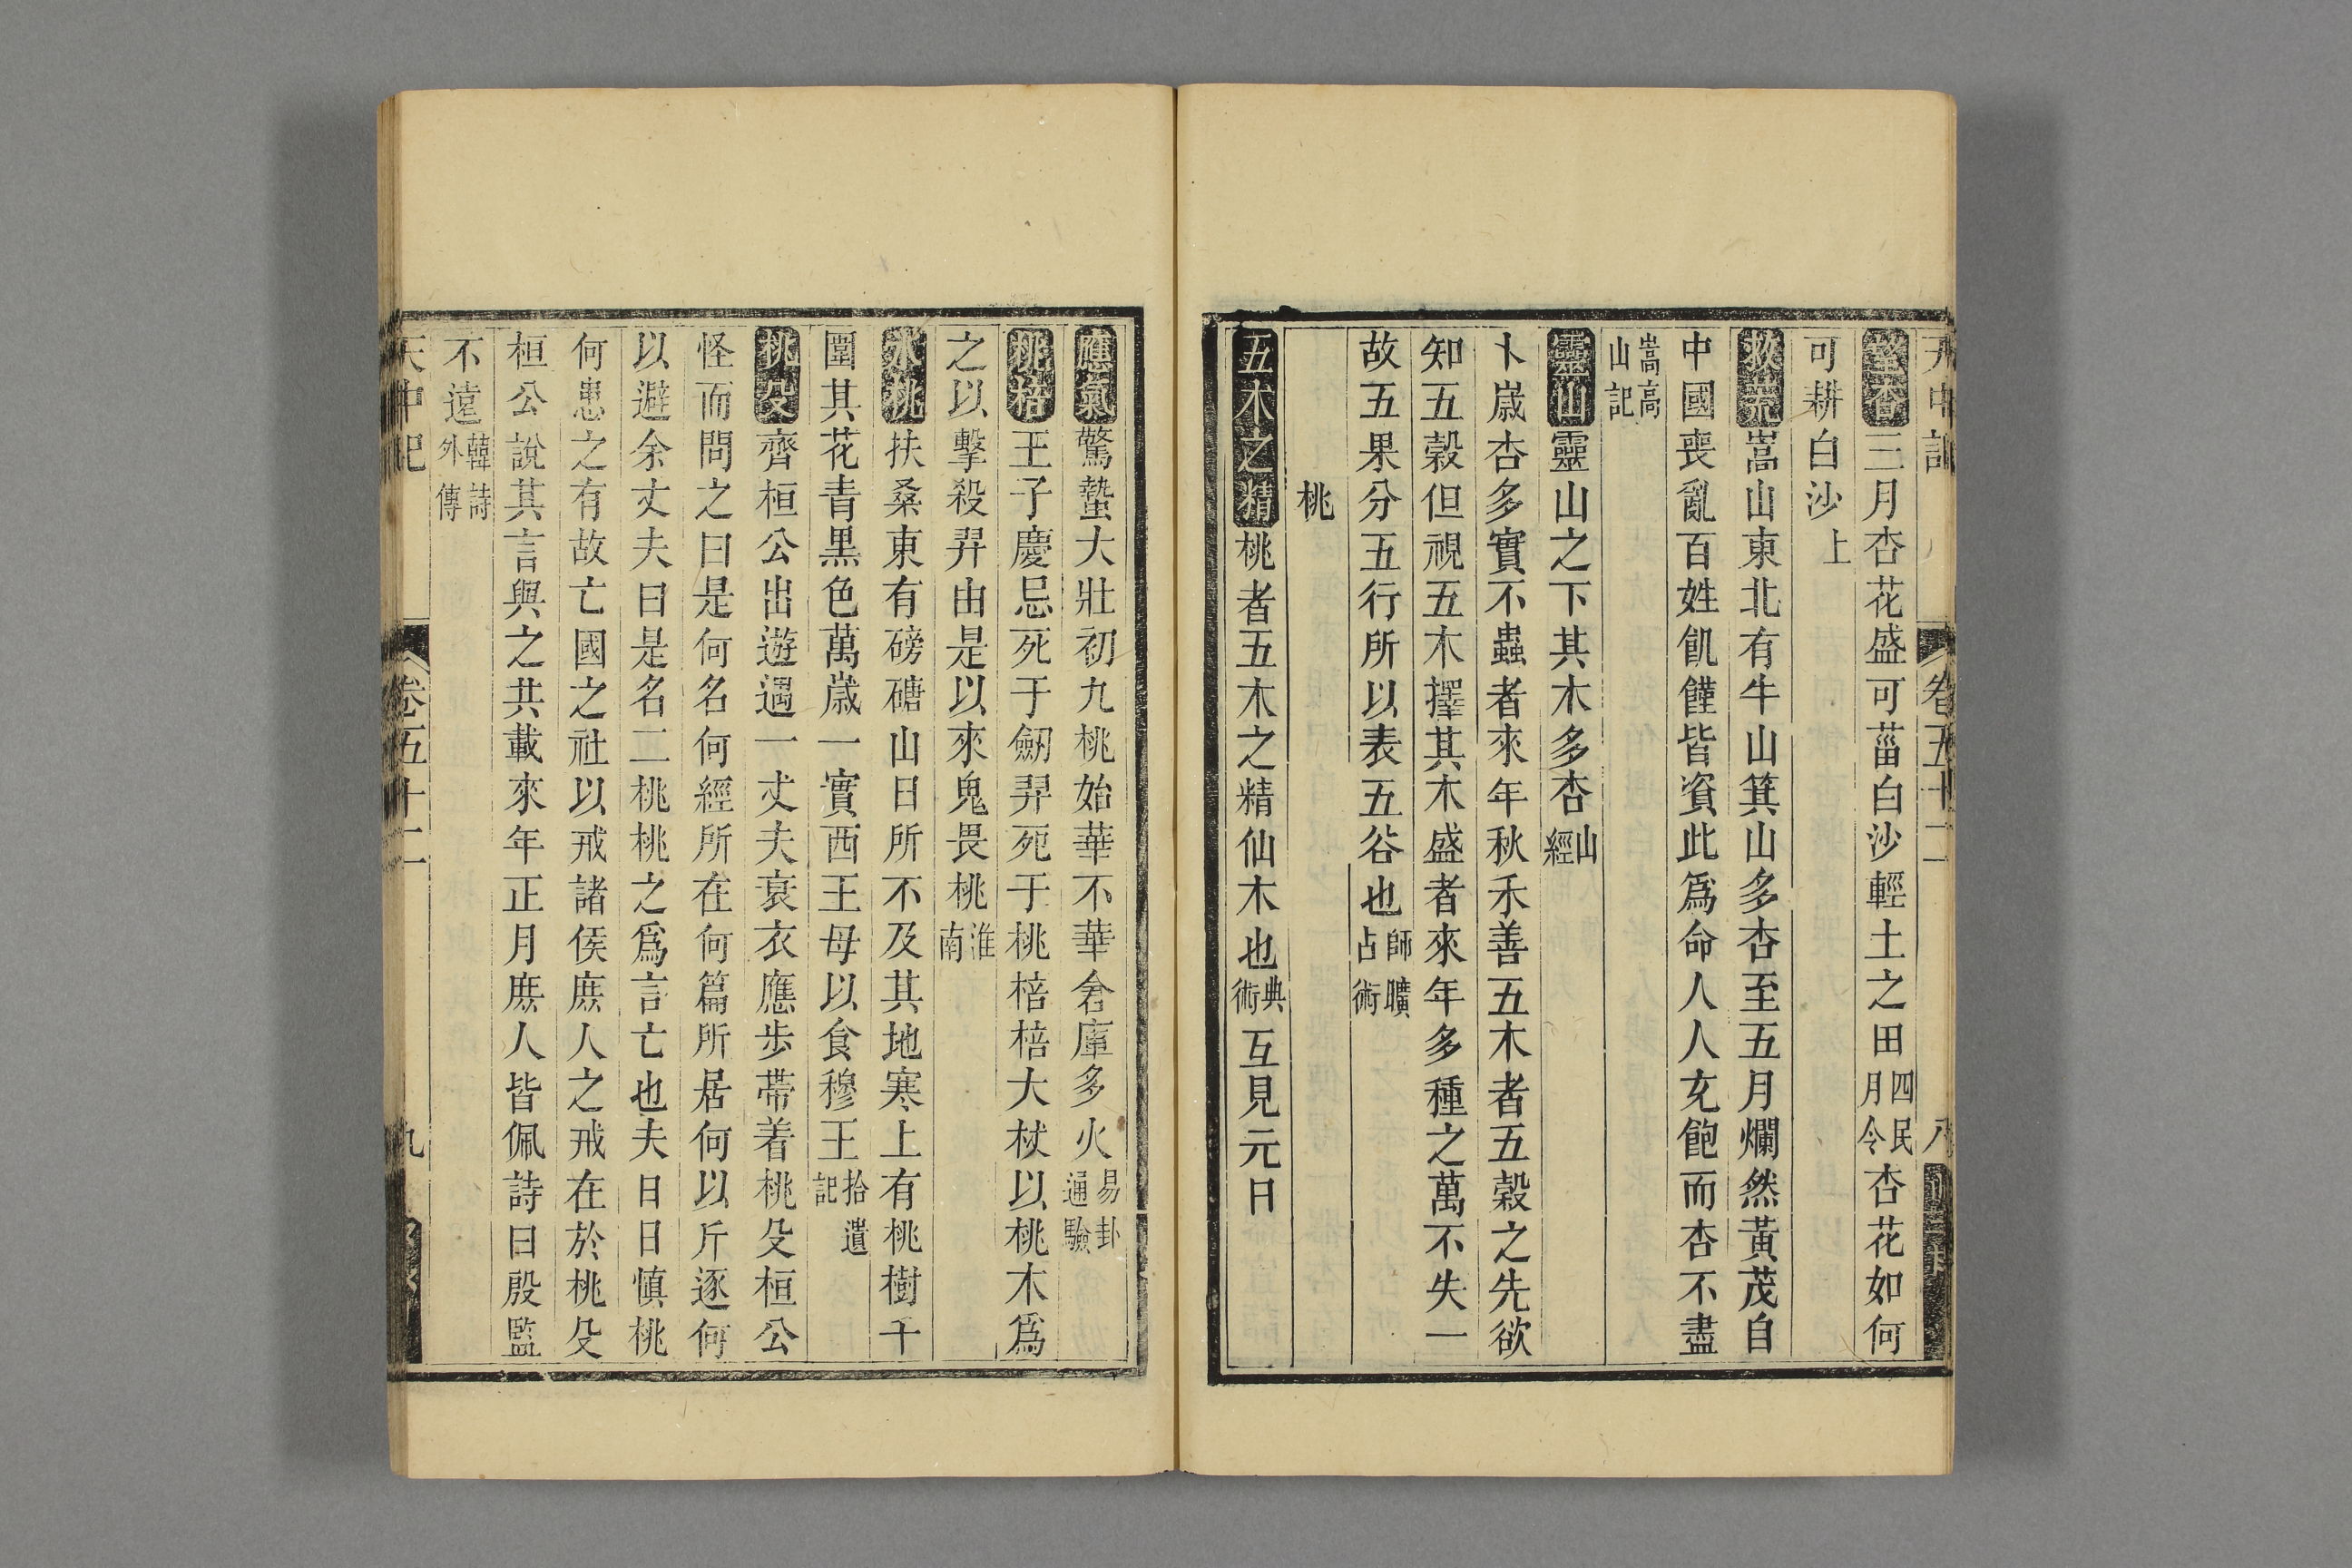 天中記 卷五十二 八
望杏三月杏花盛可菑白沙輕土之田四民月令杏花如何
可耕白沙上
救荒嵩山東北有牛山箕山多杏至五月爛然黃茂自
中國喪亂百姓飢饉皆資此爲命人人充飽而杏不盡
嵩高山記
靈山靈山之下其木多杏山經
卜歲杏多實不蟲者來年秋禾善五木者五穀之先欲
知五穀但視五木擇其木盛者來年多種之萬不失一
故五果分五行所以表五谷也師曠占術
桃
五木之精桃者五木之精仙木也典術互見元日
應氣驚蟄大壯初九桃始華不華倉庫多火易卦通驗
桃棓王子慶忌死于劒羿死于桃棓棓大杖以桃木爲
之以擊殺羿由是以來鬼畏桃淮南
氷桃扶桑東有磅磄山日所不及其地寒上有桃樹千
圍其花青黑色萬歲一實西王母以食穆王拾遺記
桃殳齊桓公出遊遇一丈夫裒衣應步帶着桃殳桓公
怪而問之曰是何名何經所在何篇所居何以斥逐何
以避余丈夫曰是名二桃桃之爲言亡也夫日日愼桃
何患之有故亡國之社以戒諸侯庶人之戒在於桃殳
桓公說其言與之共載來年正月庶人皆佩詩曰殷監
不遠韓詩外傳
天中記 卷五十二 九